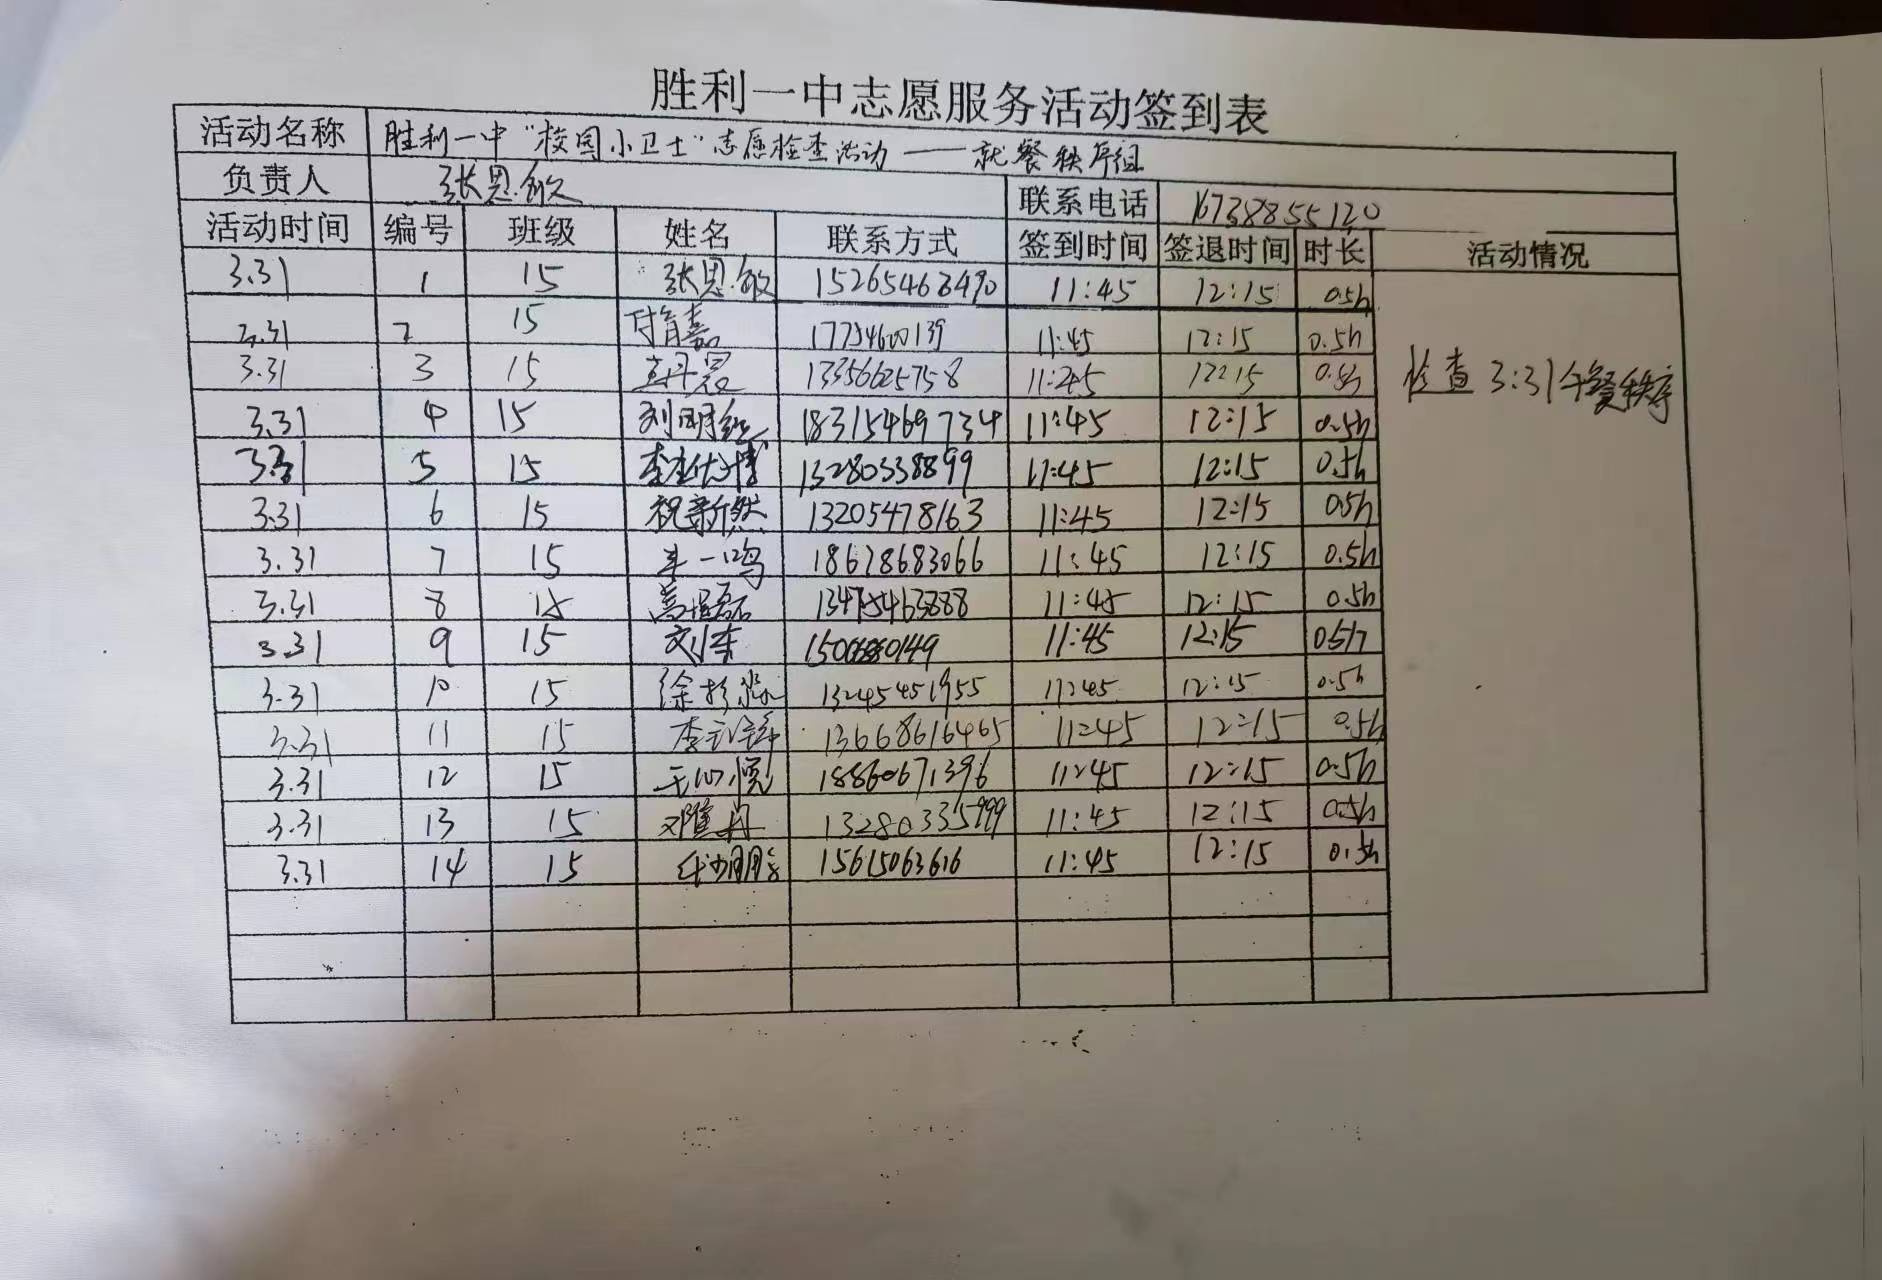 胜利一中志愿服务活动签到表
活动名称 胜利一中“校园小卫士”志愿检查活动——就餐秩序组
负责人 张恩敏 联系电话 16738855120
活动时间 编号 班级 姓名 联系方式 签到时间 签退时间 时长 活动情况
3.31 1 15 张恩敏 15265463490 11:45 12:15 0.5h
3.31 2 15 付育嘉 11:45 12:15 0.5h
3.31 3 15 13356625758 11:45 12:15 0.5h 检查3:31午餐秩序
3.31 4 15 18315469734 11:45 12:15 0.5h
3.31 5 15 13280338899 11:45 12:15 0.5h
3.31 6 15 祝新然 13205478163 11:45 12:15 0.5h
3.31 7 15 一鸣 18678683066 11:45 12:15 0.5h
3.31 8 15 13475463888 11:45 12:15 0.5h
3.31 9 15 11:45 12:15 0.5h
3.31 10 15 13245451955 11:45 12:15 0.5h
3.31 11 15 13668616465 11:45 12:15 0.5h
3.31 12 15 王心悦 18860671396 11:45 12:15 0.5h
3.31 13 15 13280335999 11:45 12:15 0.5h
3.31 14 15 15615063616 11:45 12:15 0.5h